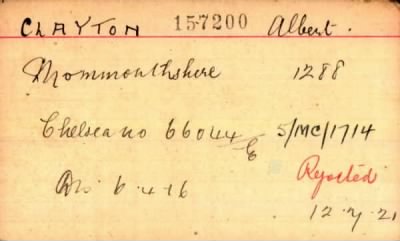 CLAYTON 157200 Albert.
Mommonthshire 1288
Chelsea no 66044/E 5/MC/1714
Rejected
Dis 6.4.16
12.7.21